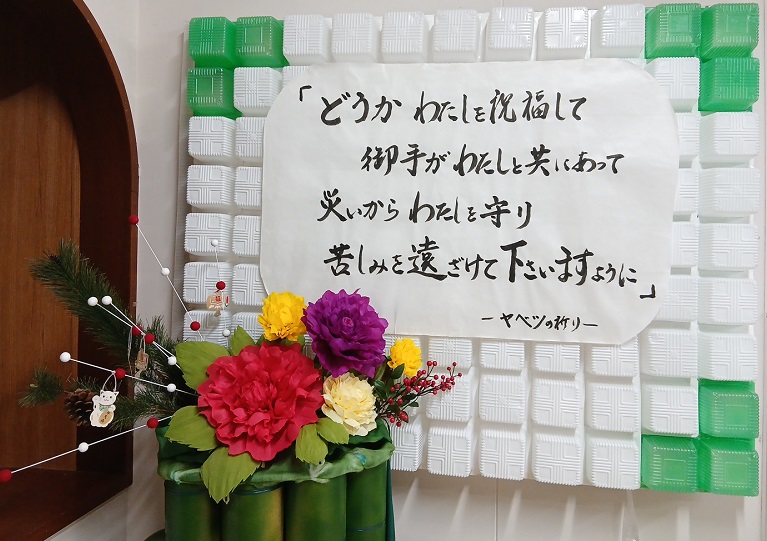 「どうか わたしを祝福して
御手がわたしと共にあって
災いから わたしを守り
苦しみを遠ざけて下さいますように」
ーヤベツの祈りー